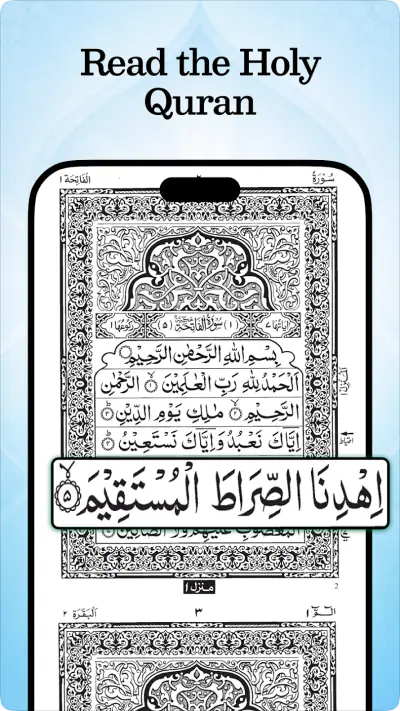 Read the Holy
Quran
سُوۡرَةُ ٢ الۡفَاتِحَة ١
اٰيَاتُهَا ٧ (١) سُوۡرَةُ الۡفَاتِحَةِ مَكِّيَّةٌ (٥) رُكُوۡعُهَا ١
بِسۡمِ اللّٰهِ الرَّحۡمٰنِ الرَّحِيۡمِ
اَلۡحَمۡدُ لِلّٰهِ رَبِّ الۡعٰلَمِيۡنَ ۙ﴿١﴾ الرَّحۡمٰنِ
الرَّحِيۡمِ ۙ﴿٢﴾ مٰلِكِ يَوۡمِ الدِّيۡنِ ؕ﴿٣﴾
اِيَّاكَ نَعۡبُدُ وَاِيَّاكَ نَسۡتَعِيۡنُ ؕ﴿٤﴾
اِهۡدِنَا الصِّرَاطَ الۡمُسۡتَقِيۡمَ ۙ﴿٥﴾
الۡمَغۡضُوۡبِ عَلَيۡهِمۡ وَلَا الضَّآلِّيۡنَ
منزل ١
2
الٓمّٓ ١ ٣ اَلۡبَقَرَة ٢